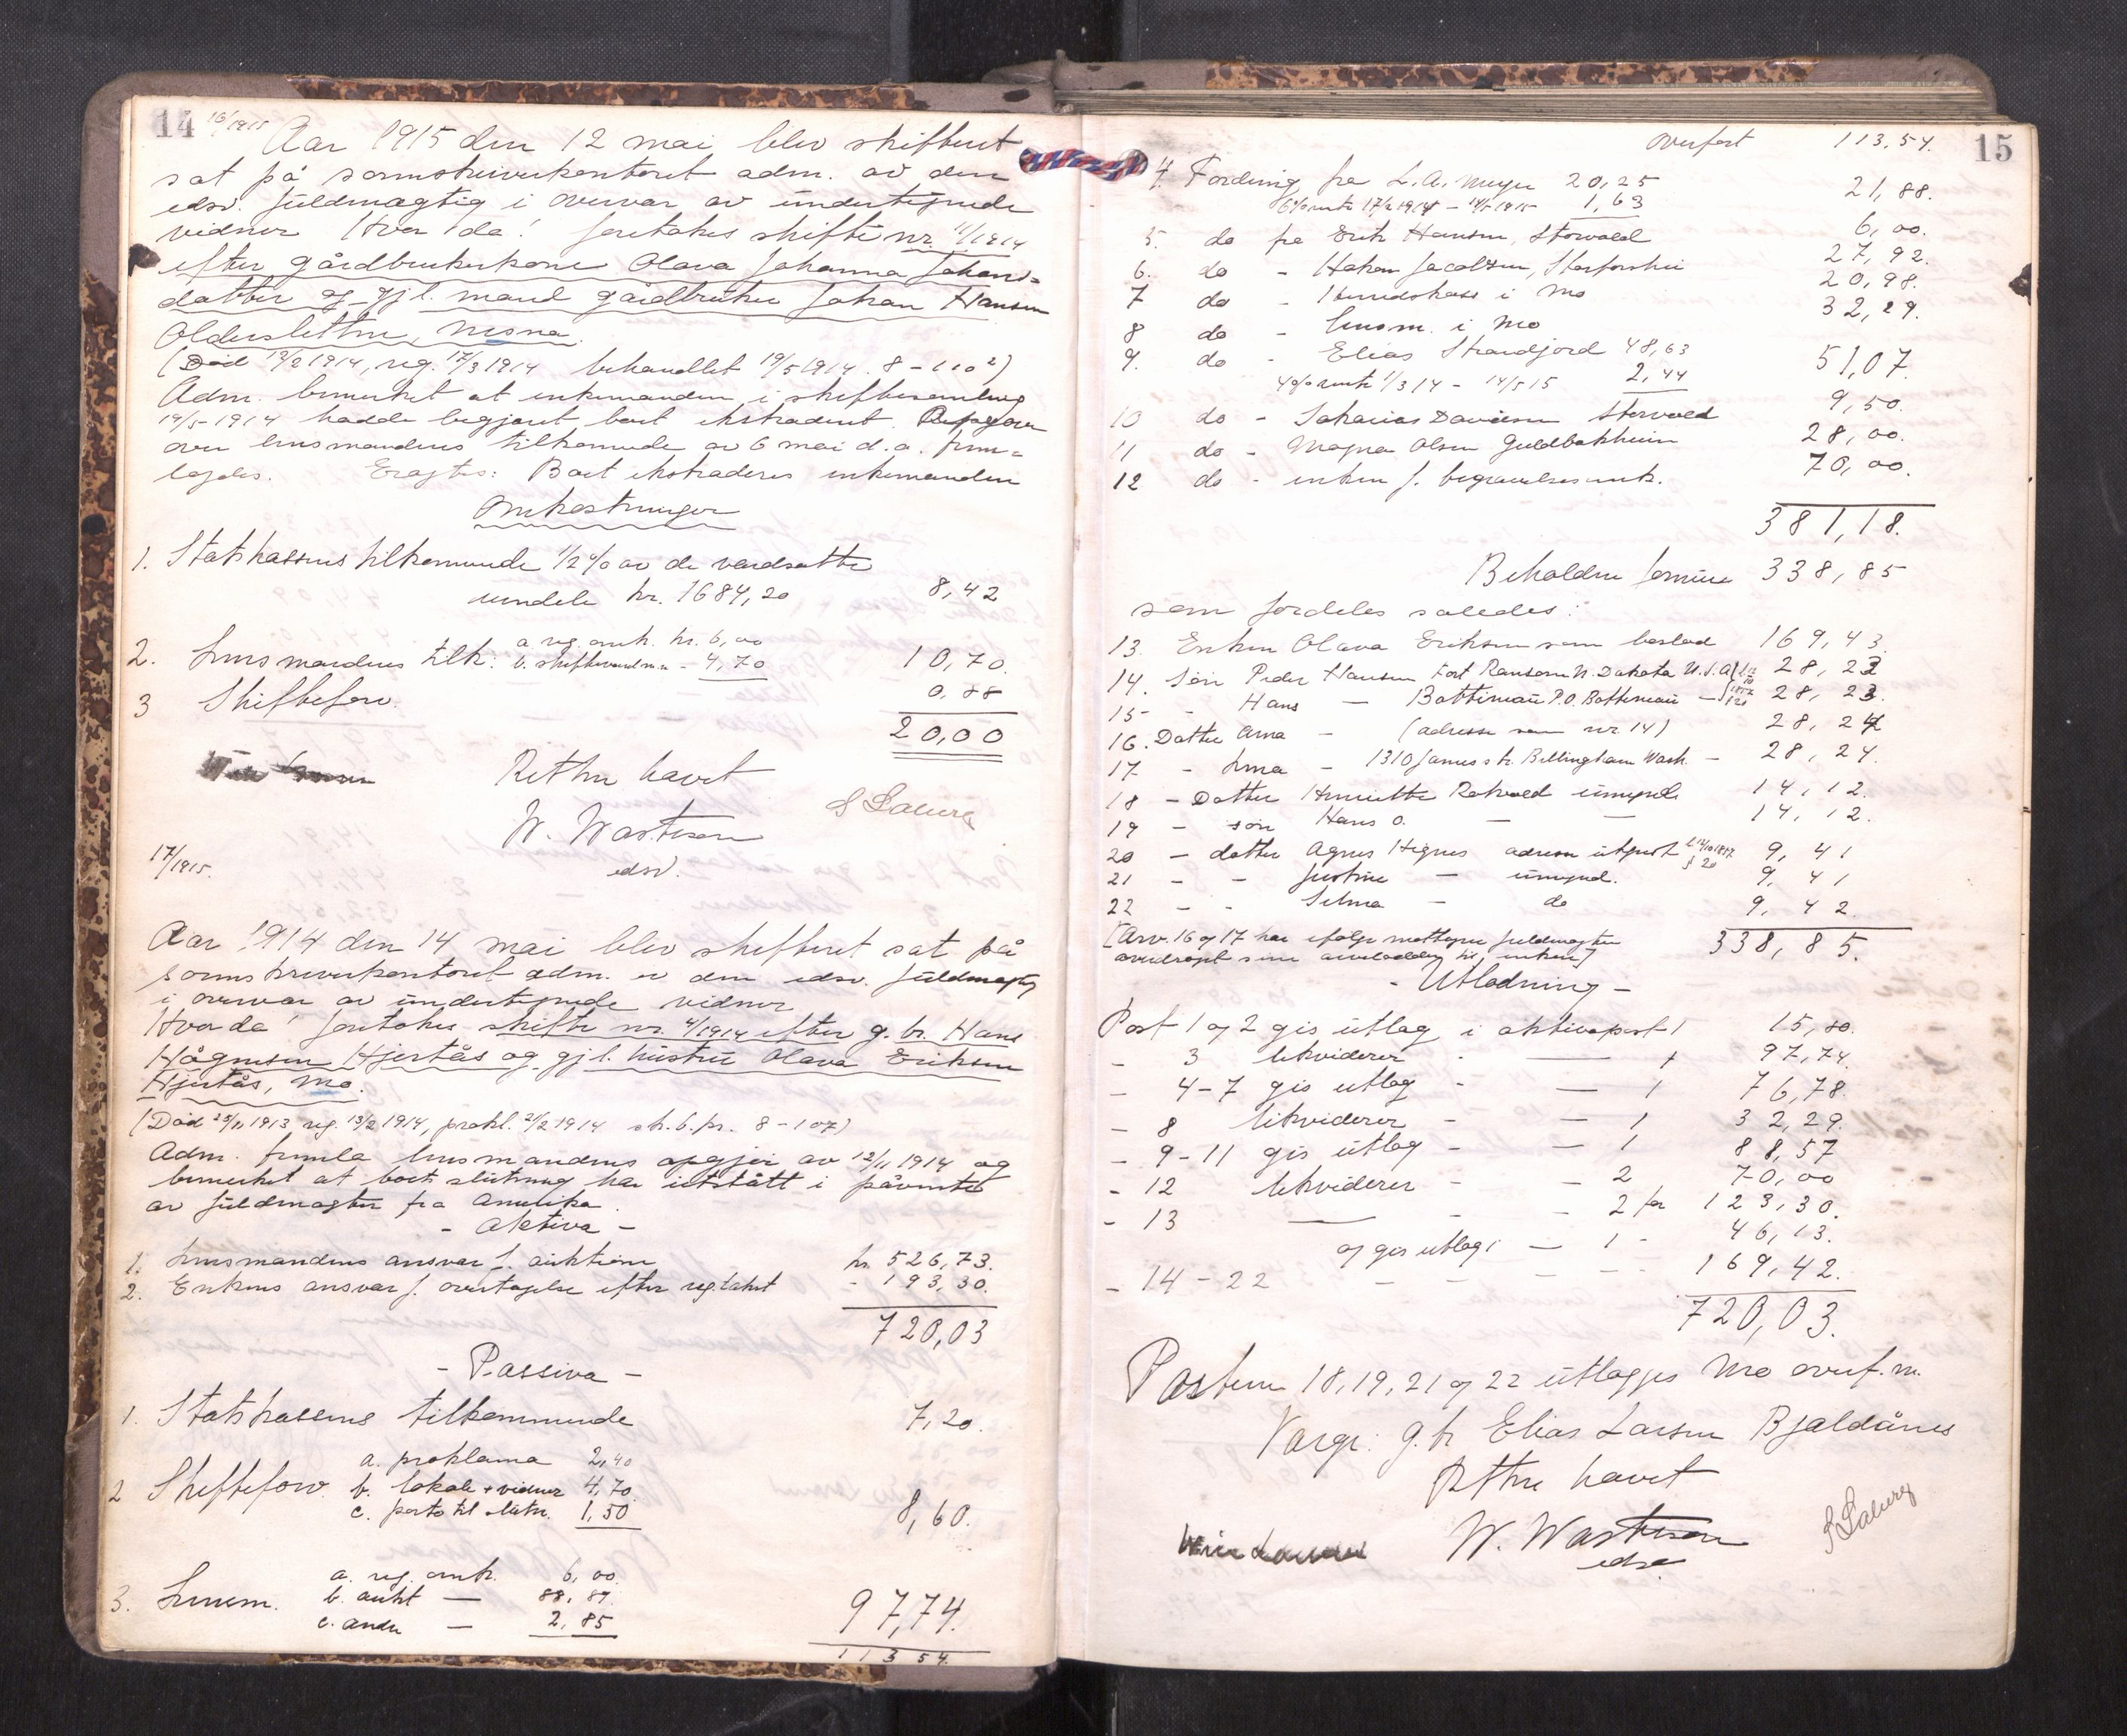 14 16/1915
Aar 1915 den 12 mai blev skifteret
sat på sorenskriverkontoret adm. av den
edsv. fuldmægtig i overvær av undertegnede
vidner Hvorda! foretokes skifte nr. 11/1914
efter gårdbrukerkone Olava Johanna Johans-
datter og gjl. mand gårdbruker Johan Hansen
Aldersletten, Nesna.
(Død 19/2 1914, reg. 17/3 1914 behandlet 19/5 1914. 8 - 110²)
Adm. bemerket at enkemanden i skiftesamling
19/5 1914 hadde begjært boet ekstradert.
over lensmandens tilkommende av 6 mai d.a. frem-
lagdes. Eragtes: Boet ekstraderes enkemanden
Omkostninger
1. Statskassens tilkommende 1/2 % av de værdsatte
eiendele kr. 1684,20 8,42
2. Lensmandens tilk. a reg. omk. kr. 6,00
b. skiftevidner - 4,70 10,70
3 Skifteforv. 0,88
20,00
Retten hævet
W. Wastesen
edsv.
S Saburg
17/1915.
Aar 1914 den 14 mai blev skifteret sat på
sorenskriverkontoret adm. av den edsv. fuldmægtig
i overvær av undertegnede vidner
Hvorda! foretokes skifte nr. 4/1914 efter g. br. Hans
Hågensen Hjertås og gjl. hustru Olava Eriksen
Hjertås, Mo.
(Død 25/11 1913 reg. 13/2 1914, prokl. 21/2 1914 sk.b.pr. 8 - 107)
Adm. fremla lensmandens opgjør av 12/11 1914 og
bemerket at boets slutning har utstått i påvente
av fuldmagter fra Amerika.
- Aktiva -
1. Lensmandens ansvar f. auktione kr. 526,73.
2. Enkens ansvar f. overtagelse efter reg.takst - 193,30.
720,03
- Passiva -
1. Statskassens tilkommende 7,20.
a. proklama 2,40
2 Skifteforv. b. lokale + vidner 4,70
c. porto til slutn. 1,50 8,60.
a. reg. omk. 6,00
3. Lensm. b. aukt — 88,89
c. andre — 2,85 97,74.
113 54.
15
Overført 113,54.
4. Fordring fra L.A. Meyer 20,25
6% rente 17/2 1914 - 14/5 1915 1,63 21,88.
5. do fra Erik Hansen, Storvold 6,00.
6. do - Hakon Jacobsen, Storforshei 27,92.
7 do - Herredskass i Mo 20,98.
8 do - Lensm. i Mo 32,29.
9. do - Elias Strandjord 48,63
4% rente 1/3 14 - 14/5 15 2,44 51,07.
10 do - Sakarias Davidsen Storvold 9,50.
11 do - Magna Olsen Guldbakheien 28,00.
12 do - enken f. begravelsesomk. 70,00.
381,18.
Beholden formue 338,85
som fordeles således:
13. Enken Olava Eriksen som boslod 169,43.
14. Søn Peder Hansen Fort Ransom N. Dakota U.S.A. 28,23
15 - Hans — Bottineau P.O. Bottineau — 28,23.
16. Datter Arna - (adresse som nr. 14) 28,24
17 - Lena - 1310 James str. Bellingham Wash. - 28,24.
18 - Datter Henriette Rotvold umynd. 14,12.
19 - søn Hans O. — — 14,12.
20 - datter Agnes Hegnes adresse utgust 9,41
21 - - Justine — umynd. 9,41
22 - - Selma — do 9,42.
338,85.
[Arv. 16 og 17 har ifølge mottagne fuldmagter
overdraget sine arvelodder til enken]
- Utlodning -
Post 1 og 2 gis utlag i aktivapost 1 15,80.
- 3 likviderer - — 1 97,74.
- 4-7 gis utlag - — 1 76,78.
- 8 likviderer - — 1 32,29.
- 9-11 gis utlag - — 1 88,57
- 12 likviderer - - 2 70,00
- 13 — - - 2 før 123,30.
og gis utlag i — 1 - 46,13.
- 14-22 - - - - - 169,42.
720,03.
Postene 18, 19, 21 og 22 utlægges Mo overf.m.
Værge: g.br Elias Larsen Bjøldånes
Retten hævet
W. Wastesen
edsv.
S Saburg